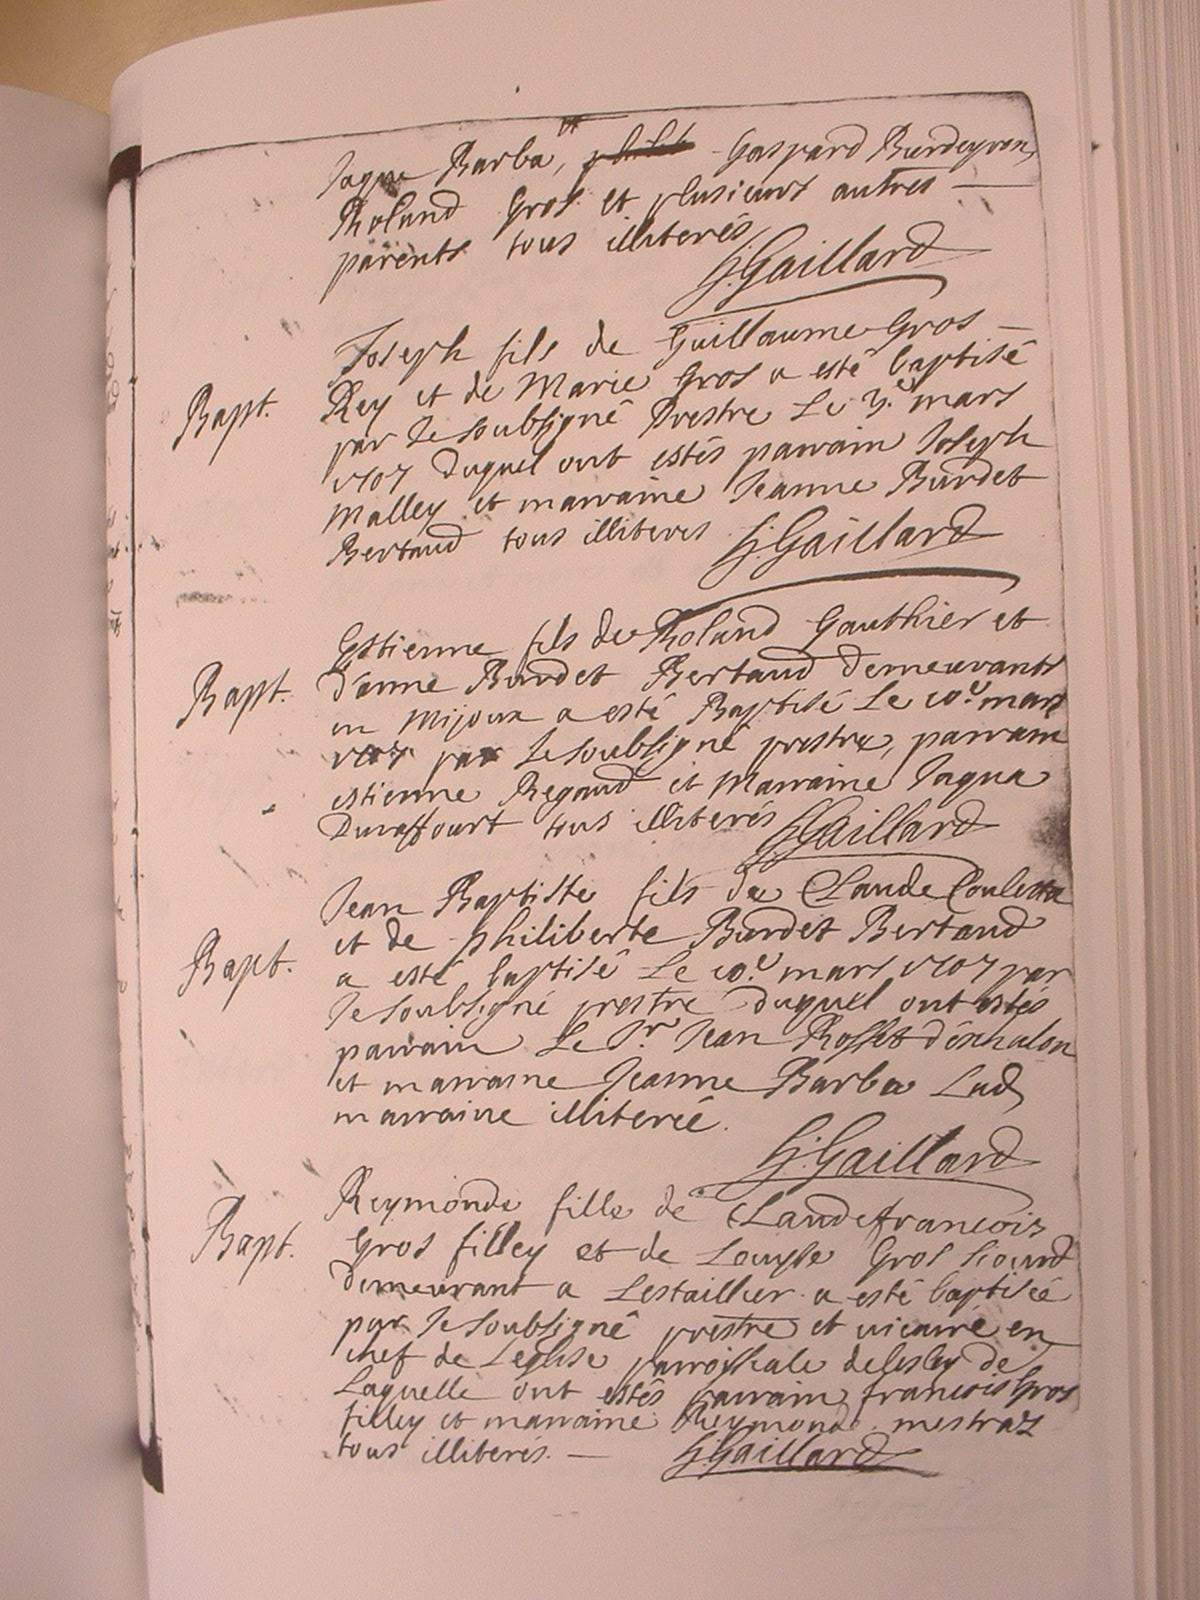 Jaque Barba, Gaspard Burdeyron,
Roland Gros et plusieurs autres —
parents tous illiterés
G. Gaillard
Joseph fils de Guillaume Gros —
Rey et de Marie Gros a esté baptisé
Bapt. par le soubsigné Prestre Le 3.e mars
1707 duquel ont estés parrain Joseph
Malley et marraine Jeanne Burdet
Bertaud tous illiteres G. Gaillard
Estienne fils de Roland Gauthier et
Bapt. d'anne Burdet Bertaud demeurants
en Mijoux a esté Baptisé Le 10.e mars
1707 par le soubsigné prestre, parrain
estienne Regaud et Marraine Jaqua
Duraffourt tous illiterés G. Gaillard
Jean Baptiste fils de Claude
et de philiberte Burdet Bertaud
Bapt. a esté baptisé Le 10.e mars 1707 par
le soubsigné prestre duquel ont estés
parrain Le Sr. Jean Rosset d'échalon
et marraine Jeanne Barba Lad
marraine illiterée.
G. Gaillard
Reymonde fille de Claude françois
Bapt. Gros filley et de Louyse Gros
demeurant a Lestaillier a esté baptisée
par le soubsigné prestre et vicaire en
chef de Leglise parroissiale de
Laquelle ont estés parrain françois Gros
filley et marraine Reymonde mestraz
tous illiterés. — G. Gaillard